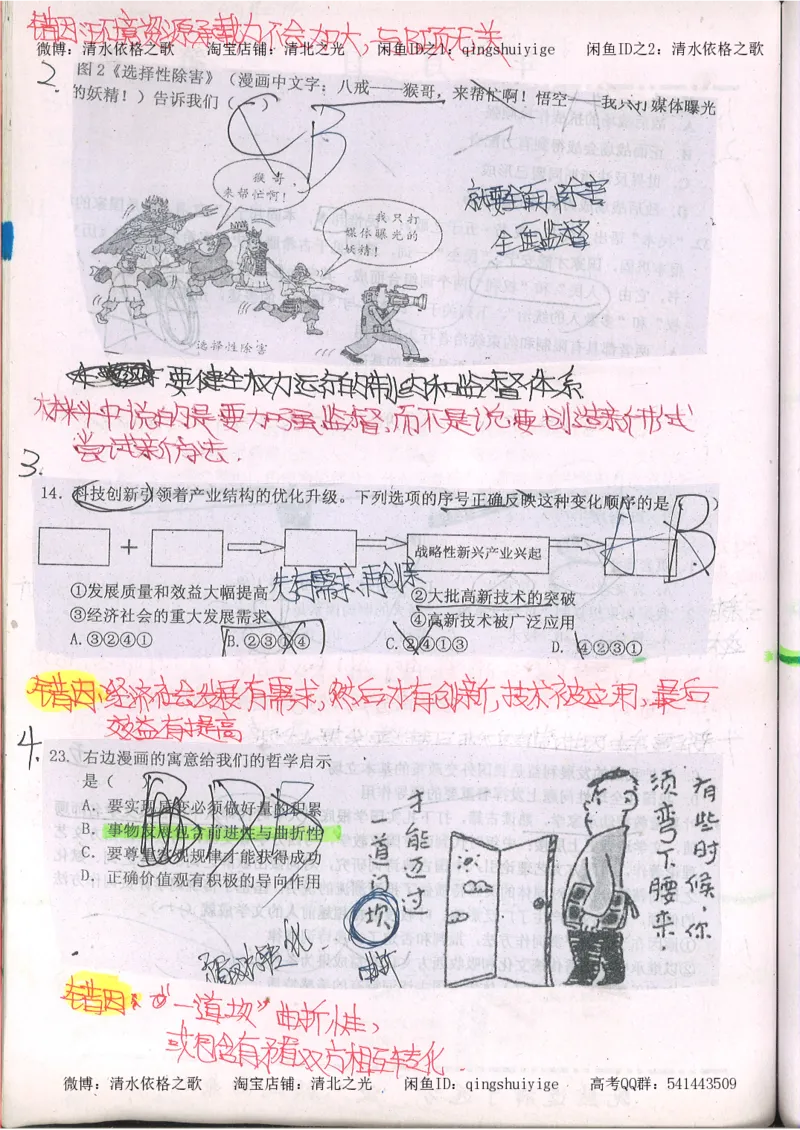 错因：环境资源承载力不会加大，与B项无关
微博：清水依格之歌 淘宝店铺：清北之光 闲鱼ID之1：qingshuiyige 闲鱼ID之2：清水依格之歌
2.
图2《选择性除害》（漫画中文字：八戒——猴哥，来帮忙啊！悟空——我只打媒体曝光
的妖精！）告诉我们（
B
猴哥
来帮忙啊！
我只打
媒体曝光的
妖精！
就要全面除害
全面监督
选择性除害
要健全权力运行的制约和监督体系
材料中说的是要加强监督，而不是说要创造新形式
尝试新方法
3.
14. 科技创新引领着产业结构的优化升级。下列选项的序号正确反映这种变化顺序的是（ ）
A B
＋
战略性新兴产业兴起
先有需求，再创新
①发展质量和效益大幅提高 ②大批高新技术的突破
③经济社会的重大发展需求 ④高新技术被广泛应用
A.③②④① B.②③①④ C.②④①③ D.④②③①
错因：经济社会发展有需求，然后才有创新，技术被应用，最后
效益有提高
4.
23. 右边漫画的寓意给我们的哲学启示
是（
A. 要实现质变必须做好量的积累
B. 事物发展包含前进性与曲折性
C. 要尊重客观规律才能获得成功
D. 正确价值观有积极的导向作用
有些时候，你
须弯下腰来
才能迈过
道门坎
曲折
错因：“一道坎”曲折性，
或包含有矛盾双方相互转化
微博：清水依格之歌 淘宝店铺：清北之光 闲鱼ID：qingshuiyige 高考QQ群：541443509